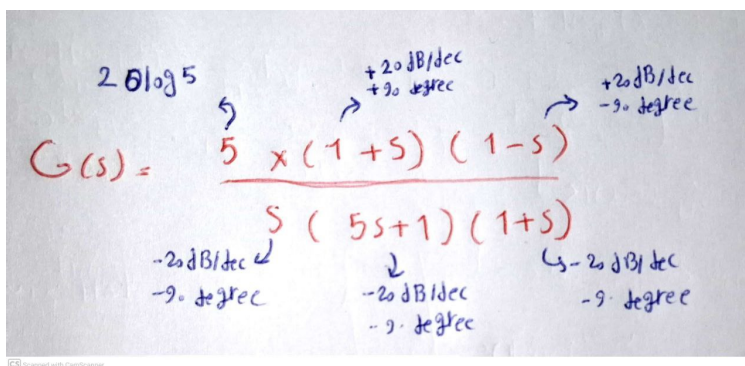 20log5
+20 dB/dec
+90 degree
+20 dB/dec
-90 degree
G(s) = 5 x (1 + s) ( 1 - s)
s ( 5s + 1 ) ( 1 + s)
-20 dB/dec
-90 degree
-20 dB/dec
-90 degree
-20 dB/dec
-90 degree
CS Scanned with CamScanner